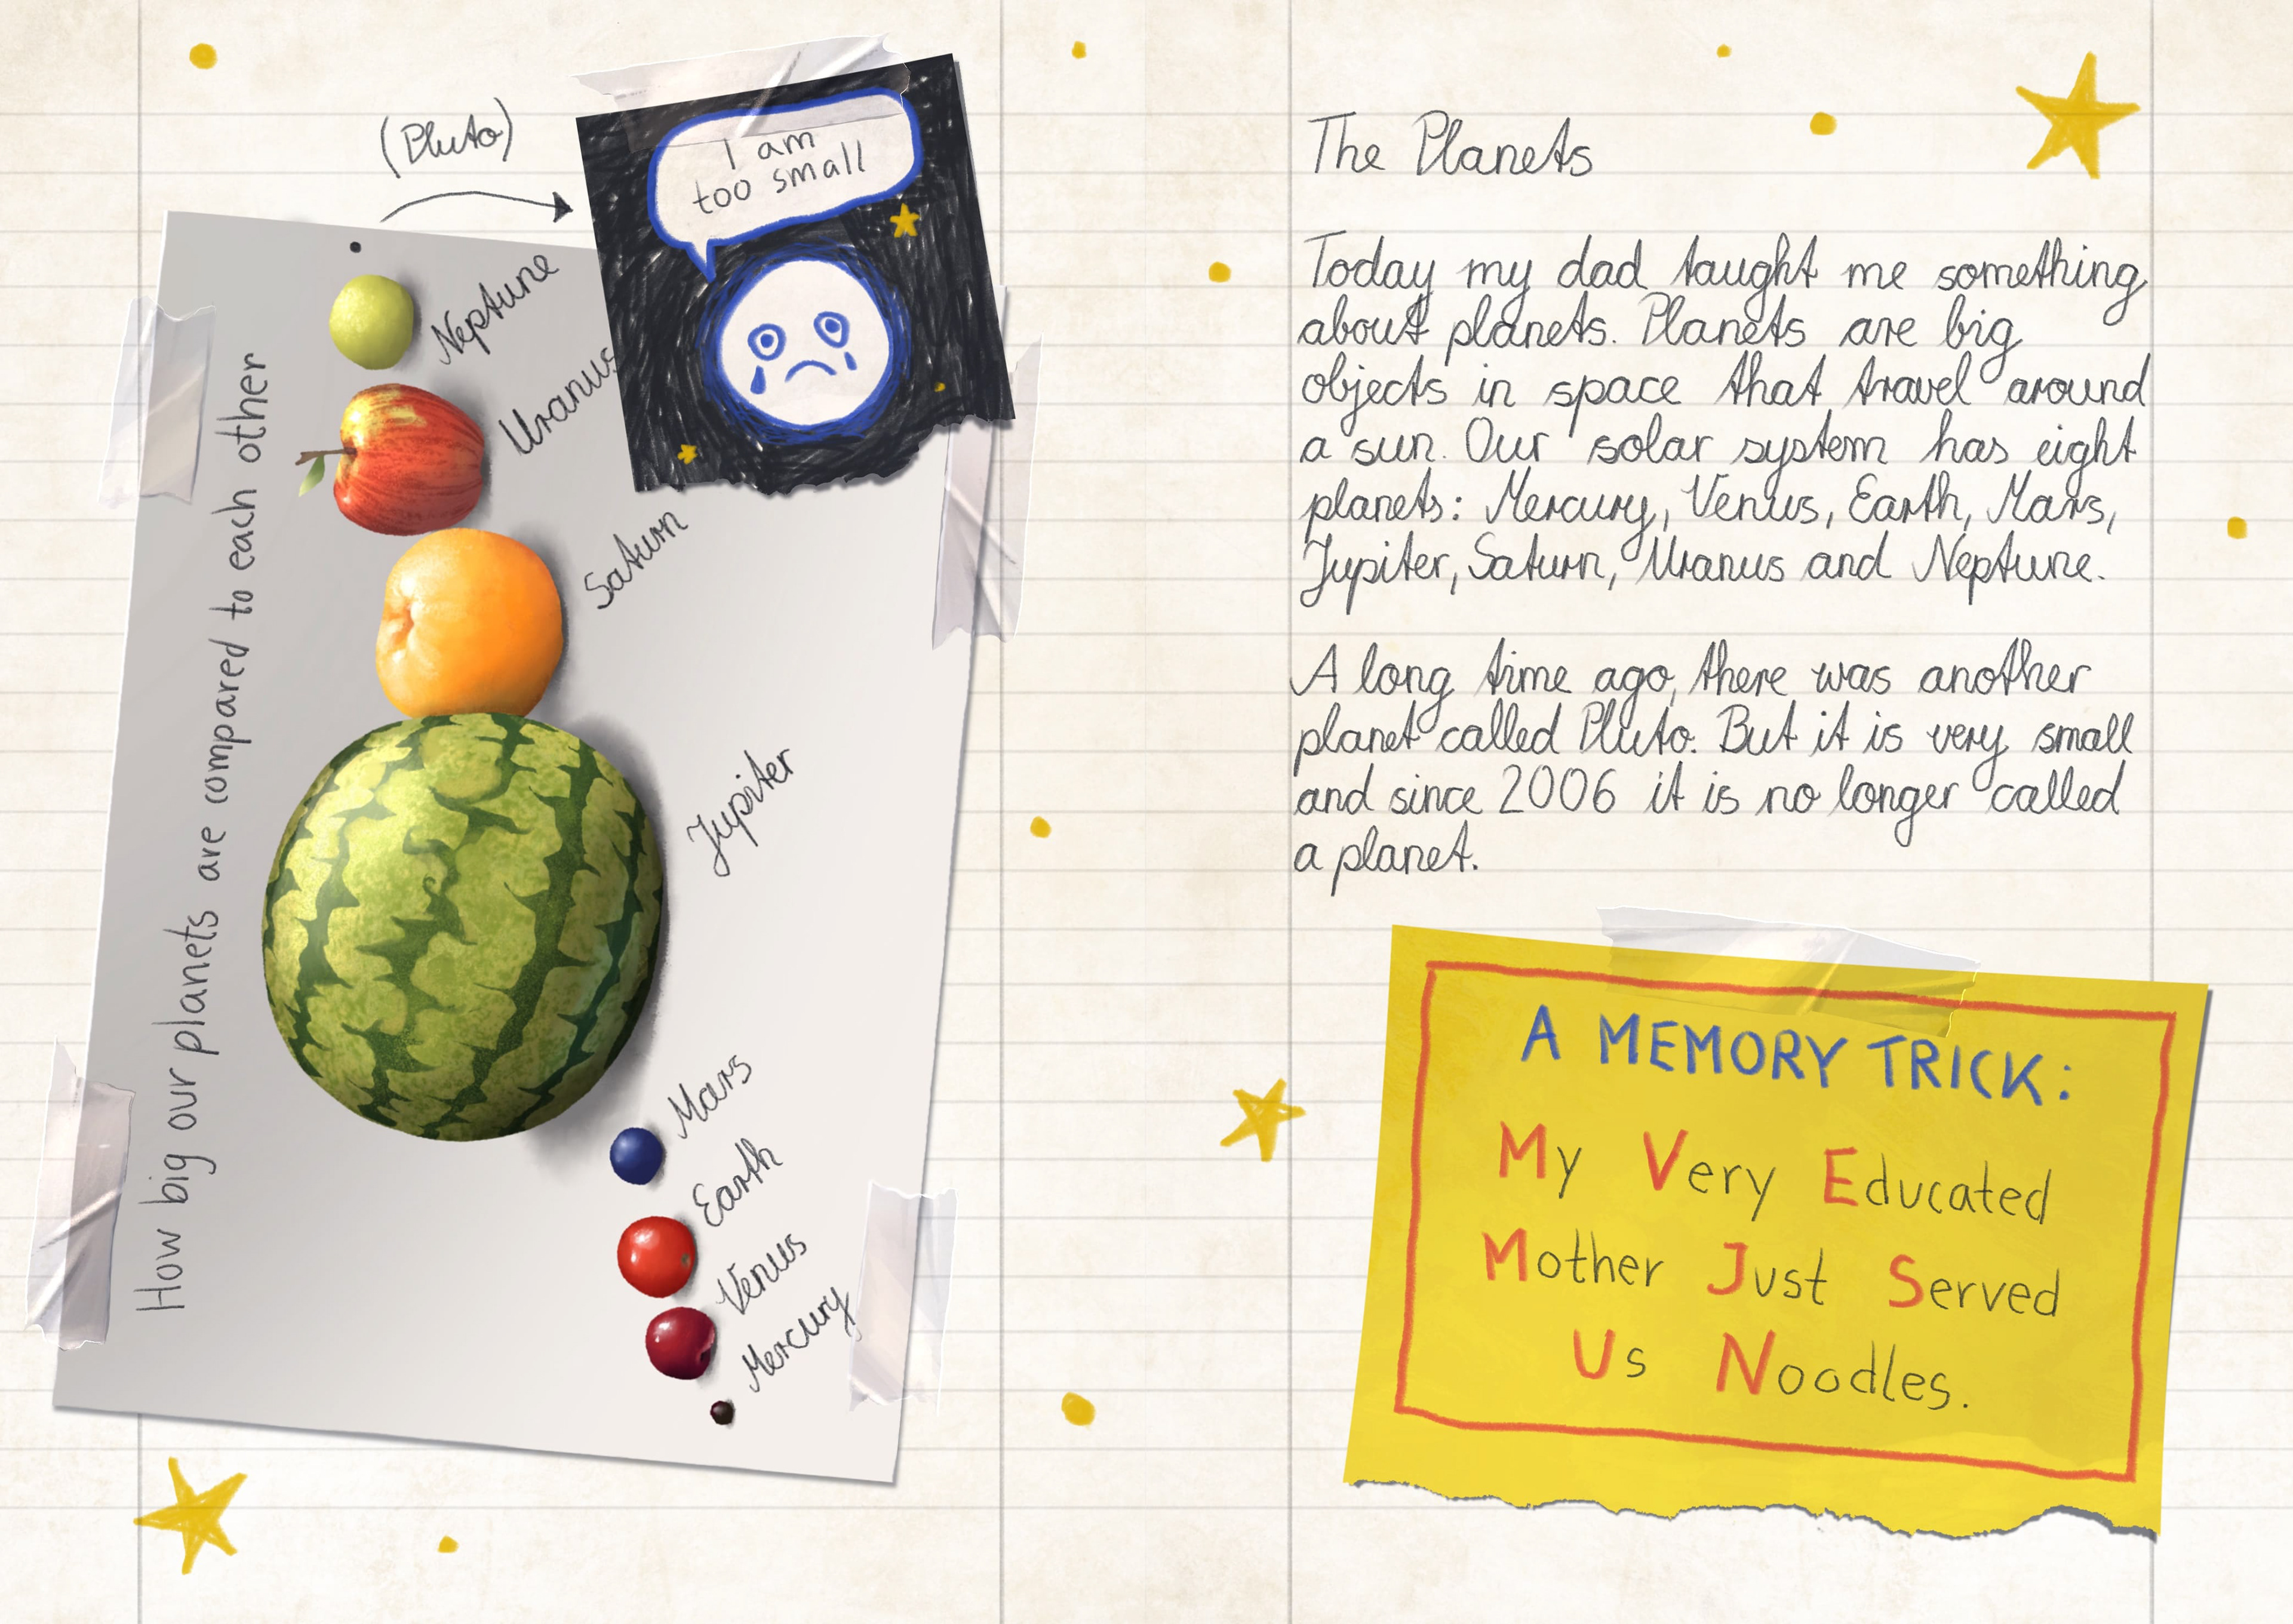 (Pluto)
I am
too small
Neptune
Uranus
Saturn
Jupiter
Mars
Earth
Venus
Mercury
How big our planets are compared to each other
The Planets
Today my dad taught me something
about planets. Planets are big
objects in space that travel around
a sun. Our solar system has eight
planets: Mercury, Venus, Earth, Mars,
Jupiter, Saturn, Uranus and Neptune.
A long time ago, there was another
planet called Pluto. But it is very small
and since 2006 it is no longer called
a planet.
A MEMORY TRICK:
My Very Educated
Mother Just Served
Us Noodles.